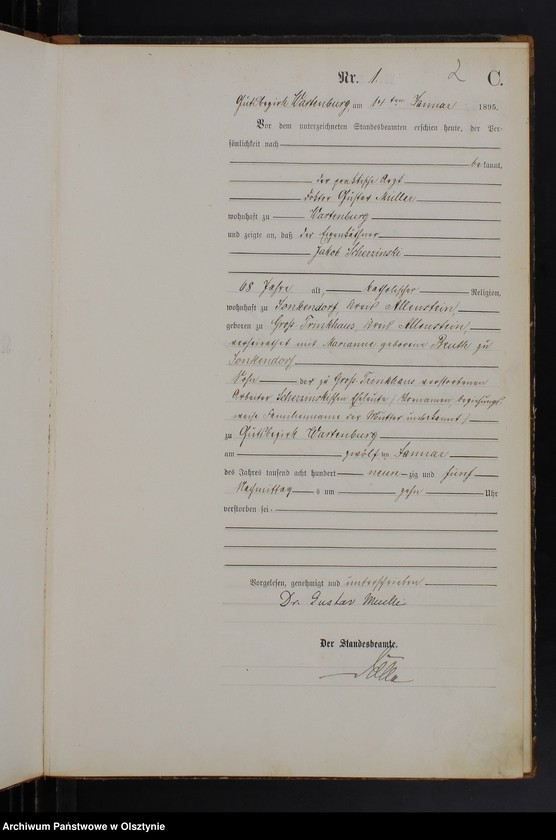 Nr. 1. 2 C.
Gutsbezirk Wartenburg, am 14ten Januar 1895.
Vor dem unterzeichneten Standesbeamten erschien heute, der Per-
sönlichkeit nach
be kannt,
der praktische Arzt
Doktor Gustav Müller
wohnhaft zu Wartenburg
und zeigte an, daß der Eigenkäthner
Jakob Scherzinski
68 Jahre alt, katholischer Religion,
wohnhaft zu Jonkendorf, Kreis Allenstein,
geboren zu Groß Trinkhaus, Kreis Allenstein,
verheirathet mit Marianne geborene zu
Jonkendorf
Sohn der zu Groß Trinkhaus verstorbenen
Arbeiter Scherzinskischen Eheleute, Vornamen, beziehungs
weise Familienname der Mutter unbekannt,
zu Gutsbezirk Wartenburg
am zwölften Januar
des Jahres tausend acht hundert neun zig und fünf
Nachmittag s um zehn Uhr
verstorben sei.
Vorgelesen, genehmigt und unterschrieben
Dr. Gustav Mueller
Der Standesbeamte.
Archiwum Państwowe w Olsztynie